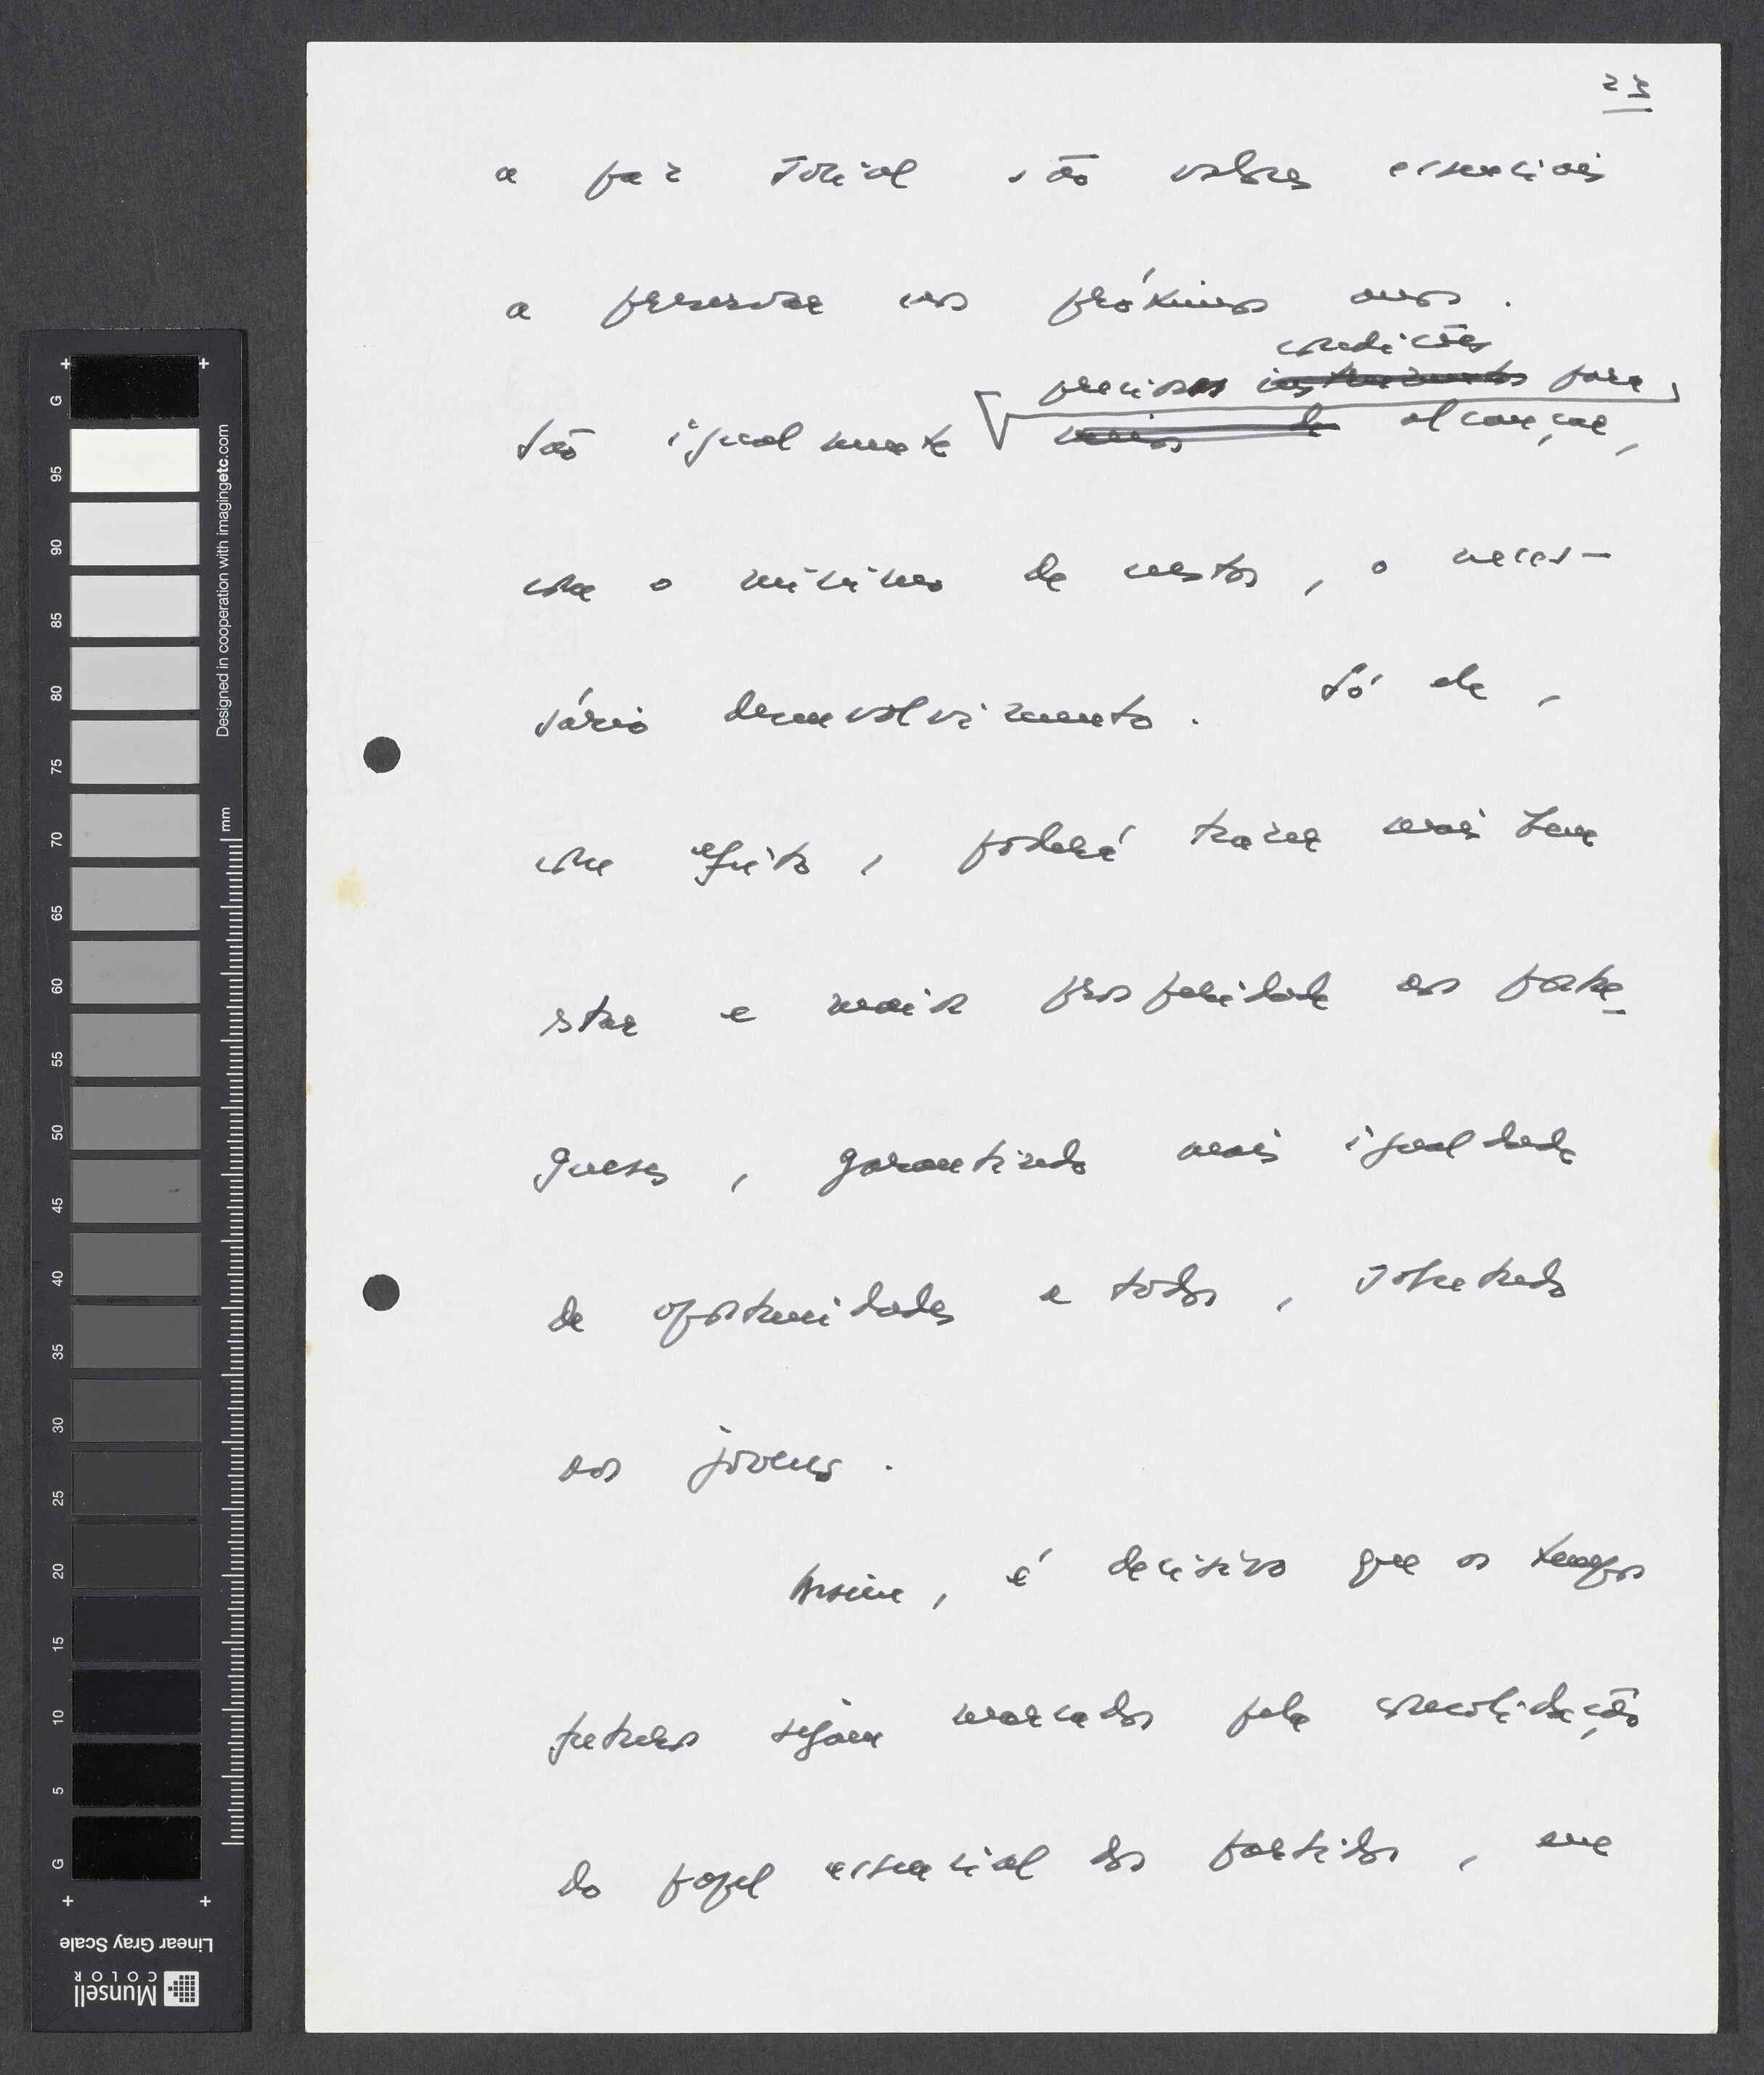 23
a paz social são valores essenciais
a preservar nos próximos anos.
condições
precisos instrumentos para
São igualmente meios de alcançar,
com o mínimo de custos, o neces-
sário desenvolvimento. Só ele,
com efeito, poderá trazer mais bem
estar e mais prosperidade aos portu-
gueses, garantindo mais igualdade
de oportunidades a todos, sobretudo
aos jovens.
Assim, é decisivo que os tempos
futuros sejam marcados pela consolidação
do papel essencial dos partidos, em
G
95
90
85
80
75
70
65
60
55
50
45
40
35
30
25
20
15
10
5
G
Designed in cooperation with imagingetc.com
mm
Linear Gray Scale
Munsell
COLOR